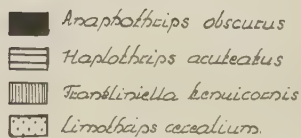 Anaphothrips obscurus
Haplothrips aculeatus
Frankliniella tenuicornis
Limothrips cerealium